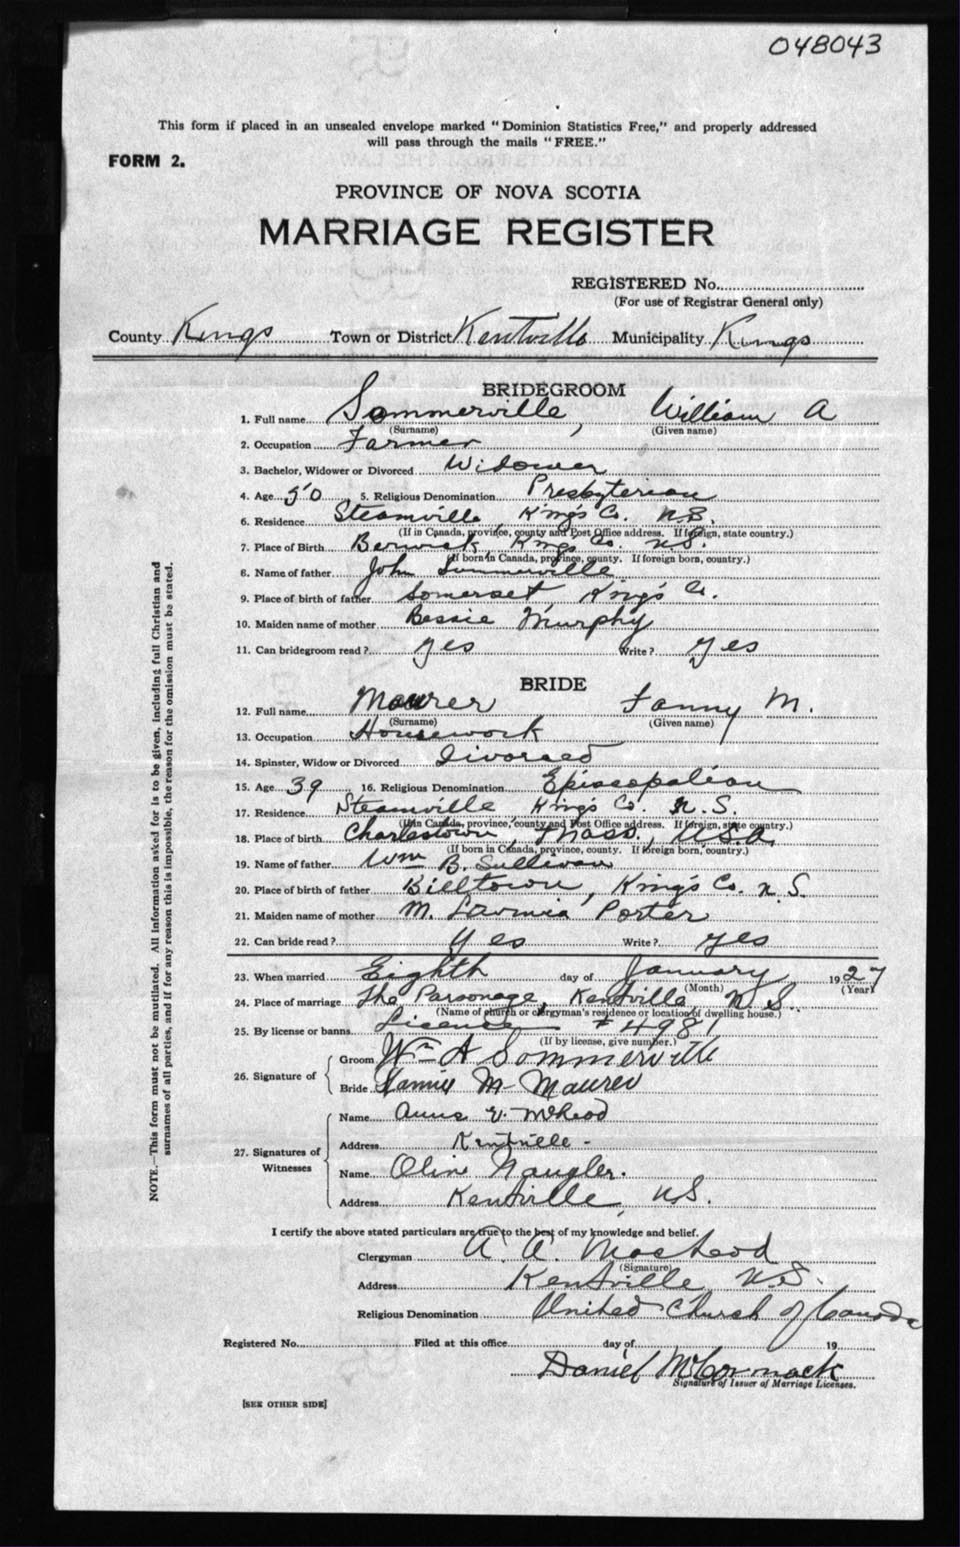 048043
This form if placed in an unsealed envelope marked "Dominion Statistics Free," and properly addressed
will pass through the mails "FREE."
FORM 2.
PROVINCE OF NOVA SCOTIA
MARRIAGE REGISTER
REGISTERED No.
(For use of Registrar General only)
County Kings Town or District Kentville Municipality Kings
BRIDEGROOM
1. Full name Sommerville, William A
(Surname) (Given name)
2. Occupation Farmer
3. Bachelor, Widower or Divorced Widower
4. Age 50 5. Religious Denomination Presbyterian
6. Residence Steamville, King's Co. N.S.
(If in Canada, province, county and Post Office address. If foreign, state country.)
7. Place of Birth Berwick, Kings Co. N.S.
(If born in Canada, province, county. If foreign born, country.)
8. Name of father John Sommerville
9. Place of birth of father Somerset, King's Co.
10. Maiden name of mother Bessie Murphy
11. Can bridegroom read? yes Write? yes
BRIDE
12. Full name Maurer Fanny M.
(Surname) (Given name)
13. Occupation Housework
14. Spinster, Widow or Divorced Divorced
15. Age 39 16. Religious Denomination Episcopalian
17. Residence Steamville King's Co. N.S.
(If in Canada, province, county and Post Office address. If foreign, state country.)
18. Place of birth Charlestown, Mass., U.S.A.
(If born in Canada, province, county. If foreign born, country.)
19. Name of father Wm B. Sullivan
20. Place of birth of father Billtown, King's Co. N.S.
21. Maiden name of mother M. Lavinia Porter
22. Can bride read? yes Write? yes
23. When married Eighth day of January 1927
(Month) (Year)
24. Place of marriage The Parsonage, Kentville, N.S.
(Name of church or clergyman's residence or location of dwelling house.)
25. By license or banns Licence #4981
(If by license, give number.)
26. Signature of
Groom Wm A Sommerville
Bride Fannie M- Maurer
27. Signatures of Witnesses
Name Anna V. McLeod
Address Kentville -
Name Olive Naugler.
Address Kentville, N.S.
I certify the above stated particulars are true to the best of my knowledge and belief.
Clergyman A. A. MacLeod
(Signature)
Address Kentville N.S.
Religious Denomination United Church of Canada
Registered No. Filed at this office day of 19
Daniel McCormack
Signature of Issuer of Marriage Licenses.
[SEE OTHER SIDE]
NOTE.—This form must not be mutilated. All information asked for is to be given, including full Christian and
surnames of all parties, and if for any reason this is impossible, the reason for the omission must be stated.